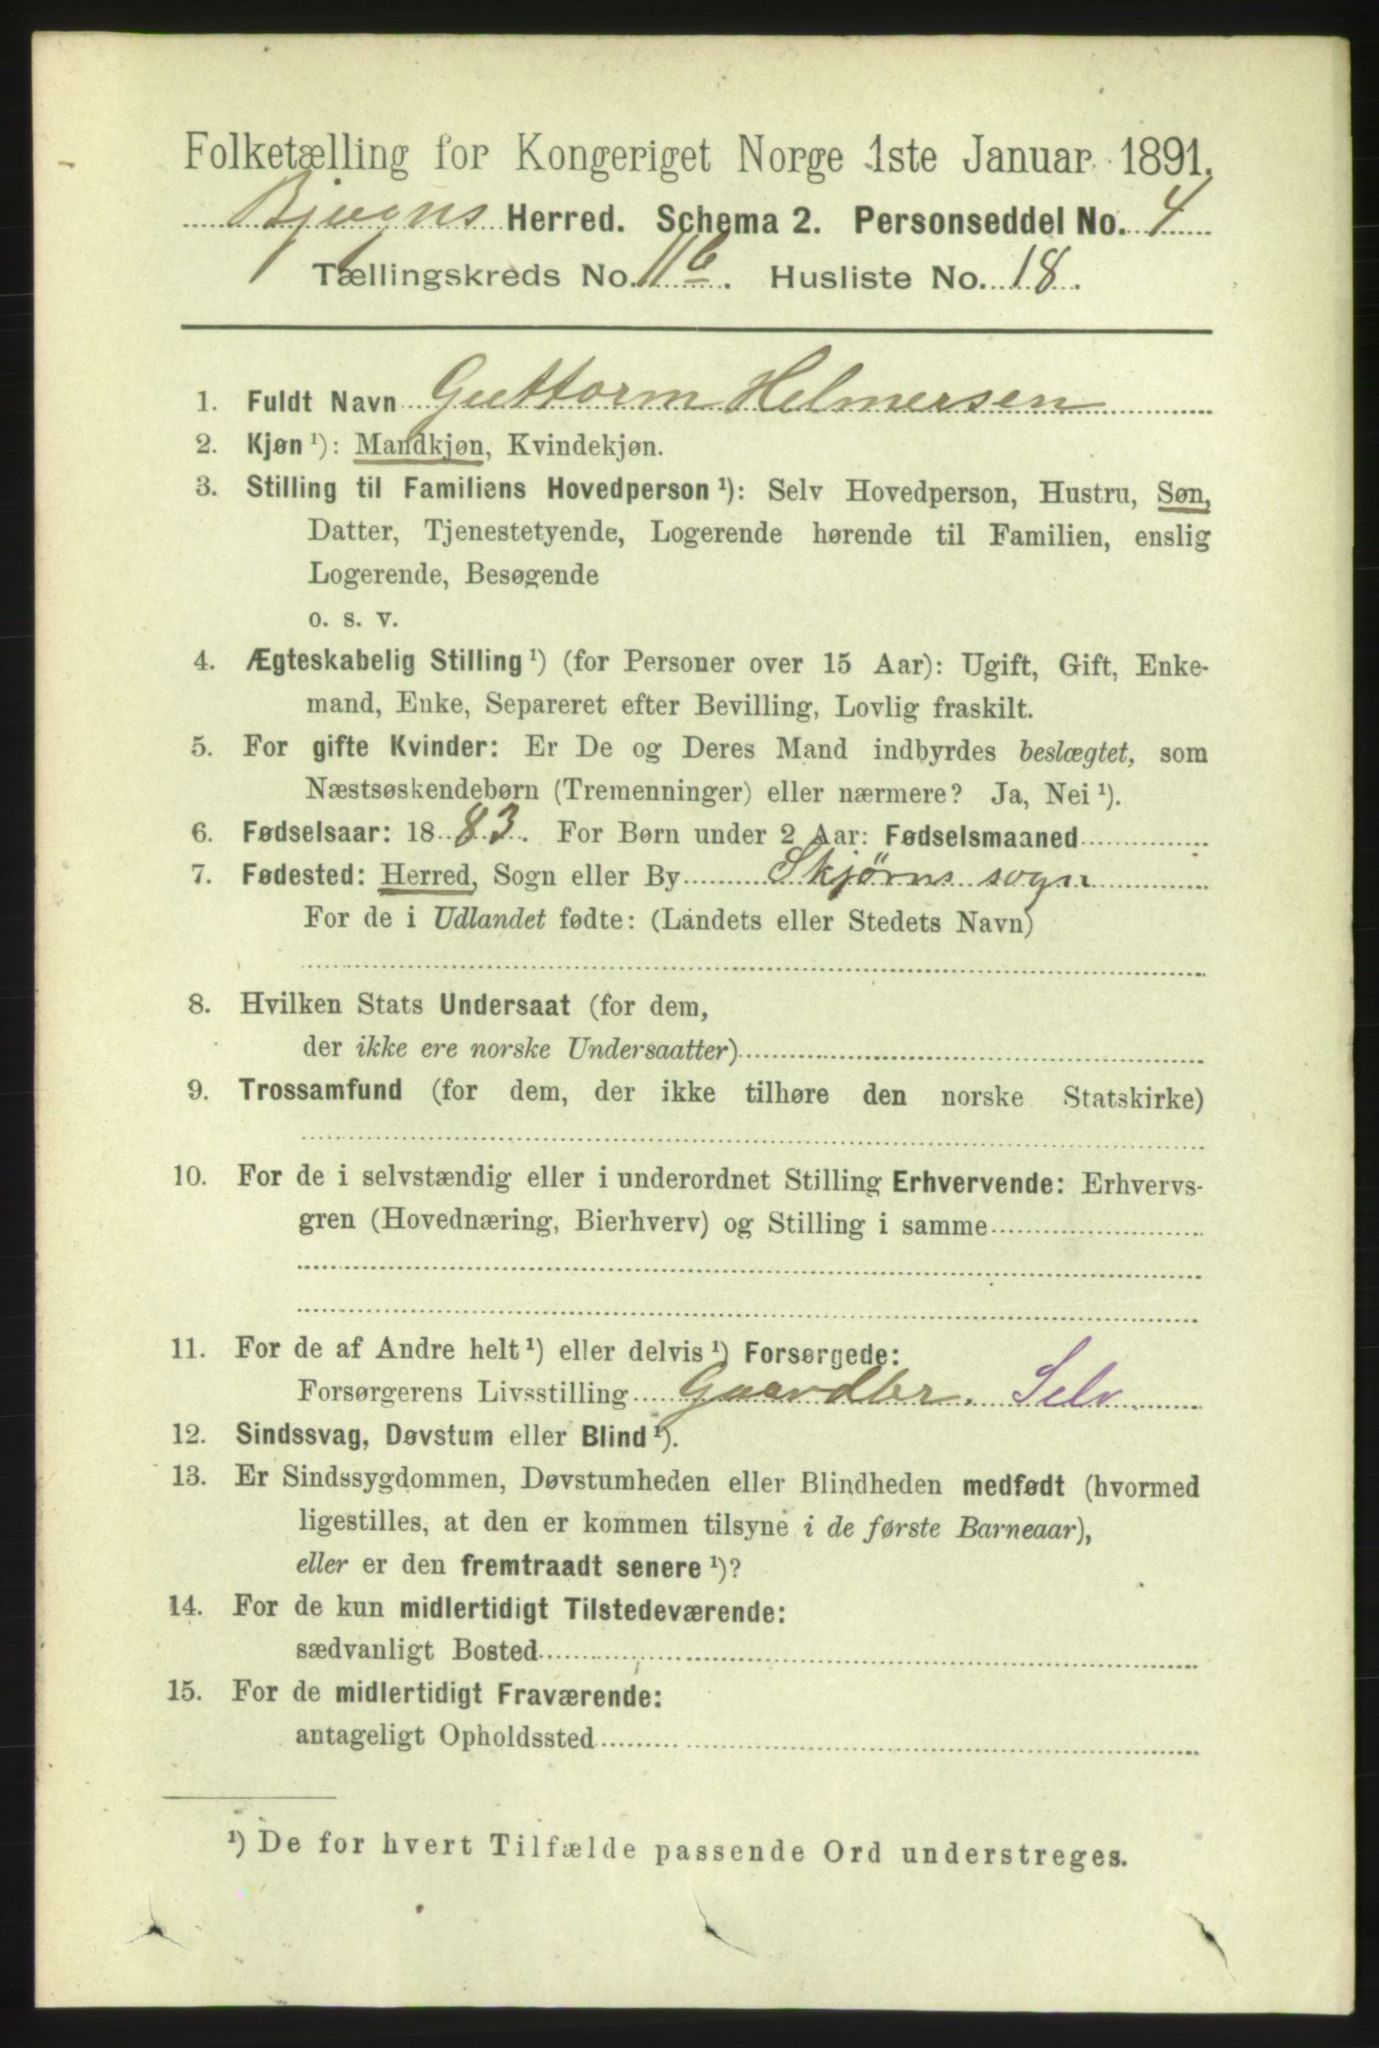 Folketælling for Kongeriget Norge 1ste Januar 1891.
Bjugns Herred. Schema 2. Personseddel No. 4
Tællingskreds No. 11b. Husliste No. 18.
1. Fuldt Navn Guttorm Helmersen
2. Kjøn ¹): Mandkjøn, Kvindekjøn.
3. Stilling til Familiens Hovedperson ¹): Selv Hovedperson, Hustru, Søn,
Datter, Tjenestetyende, Logerende hørende til Familien, enslig
Logerende, Besøgende
o. s. v.
4. Ægteskabelig Stilling ¹) (for Personer over 15 Aar): Ugift, Gift, Enke-
mand, Enke, Separeret efter Bevilling, Lovlig fraskilt.
5. For gifte Kvinder: Er De og Deres Mand indbyrdes beslægtet, som
Næstsøskendebørn (Tremenninger) eller nærmere? Ja, Nei ¹).
6. Fødselsaar: 1883. For Børn under 2 Aar: Fødselsmaaned
7. Fødested: Herred, Sogn eller By Skjørns sogn
For de i Udlandet fødte: (Landets eller Stedets Navn)
8. Hvilken Stats Undersaat (for dem,
der ikke ere norske Undersaatter)
9. Trossamfund (for dem, der ikke tilhøre den norske Statskirke)
10. For de i selvstændig eller i underordnet Stilling Erhvervende: Erhvervs-
gren (Hovednæring, Bierhverv) og Stilling i samme
11. For de af Andre helt ¹) eller delvis ¹) Forsørgede:
Forsørgerens Livsstilling Gaardbr. Selv
12. Sindssvag, Døvstum eller Blind ¹).
13. Er Sindssygdommen, Døvstumheden eller Blindheden medfødt (hvormed
ligestilles, at den er kommen tilsyne i de første Barneaar),
eller er den fremtraadt senere ¹)?
14. For de kun midlertidigt Tilstedeværende:
sædvanligt Bosted
15. For de midlertidigt Fraværende:
antageligt Opholdssted
¹) De for hvert Tilfælde passende Ord understreges.